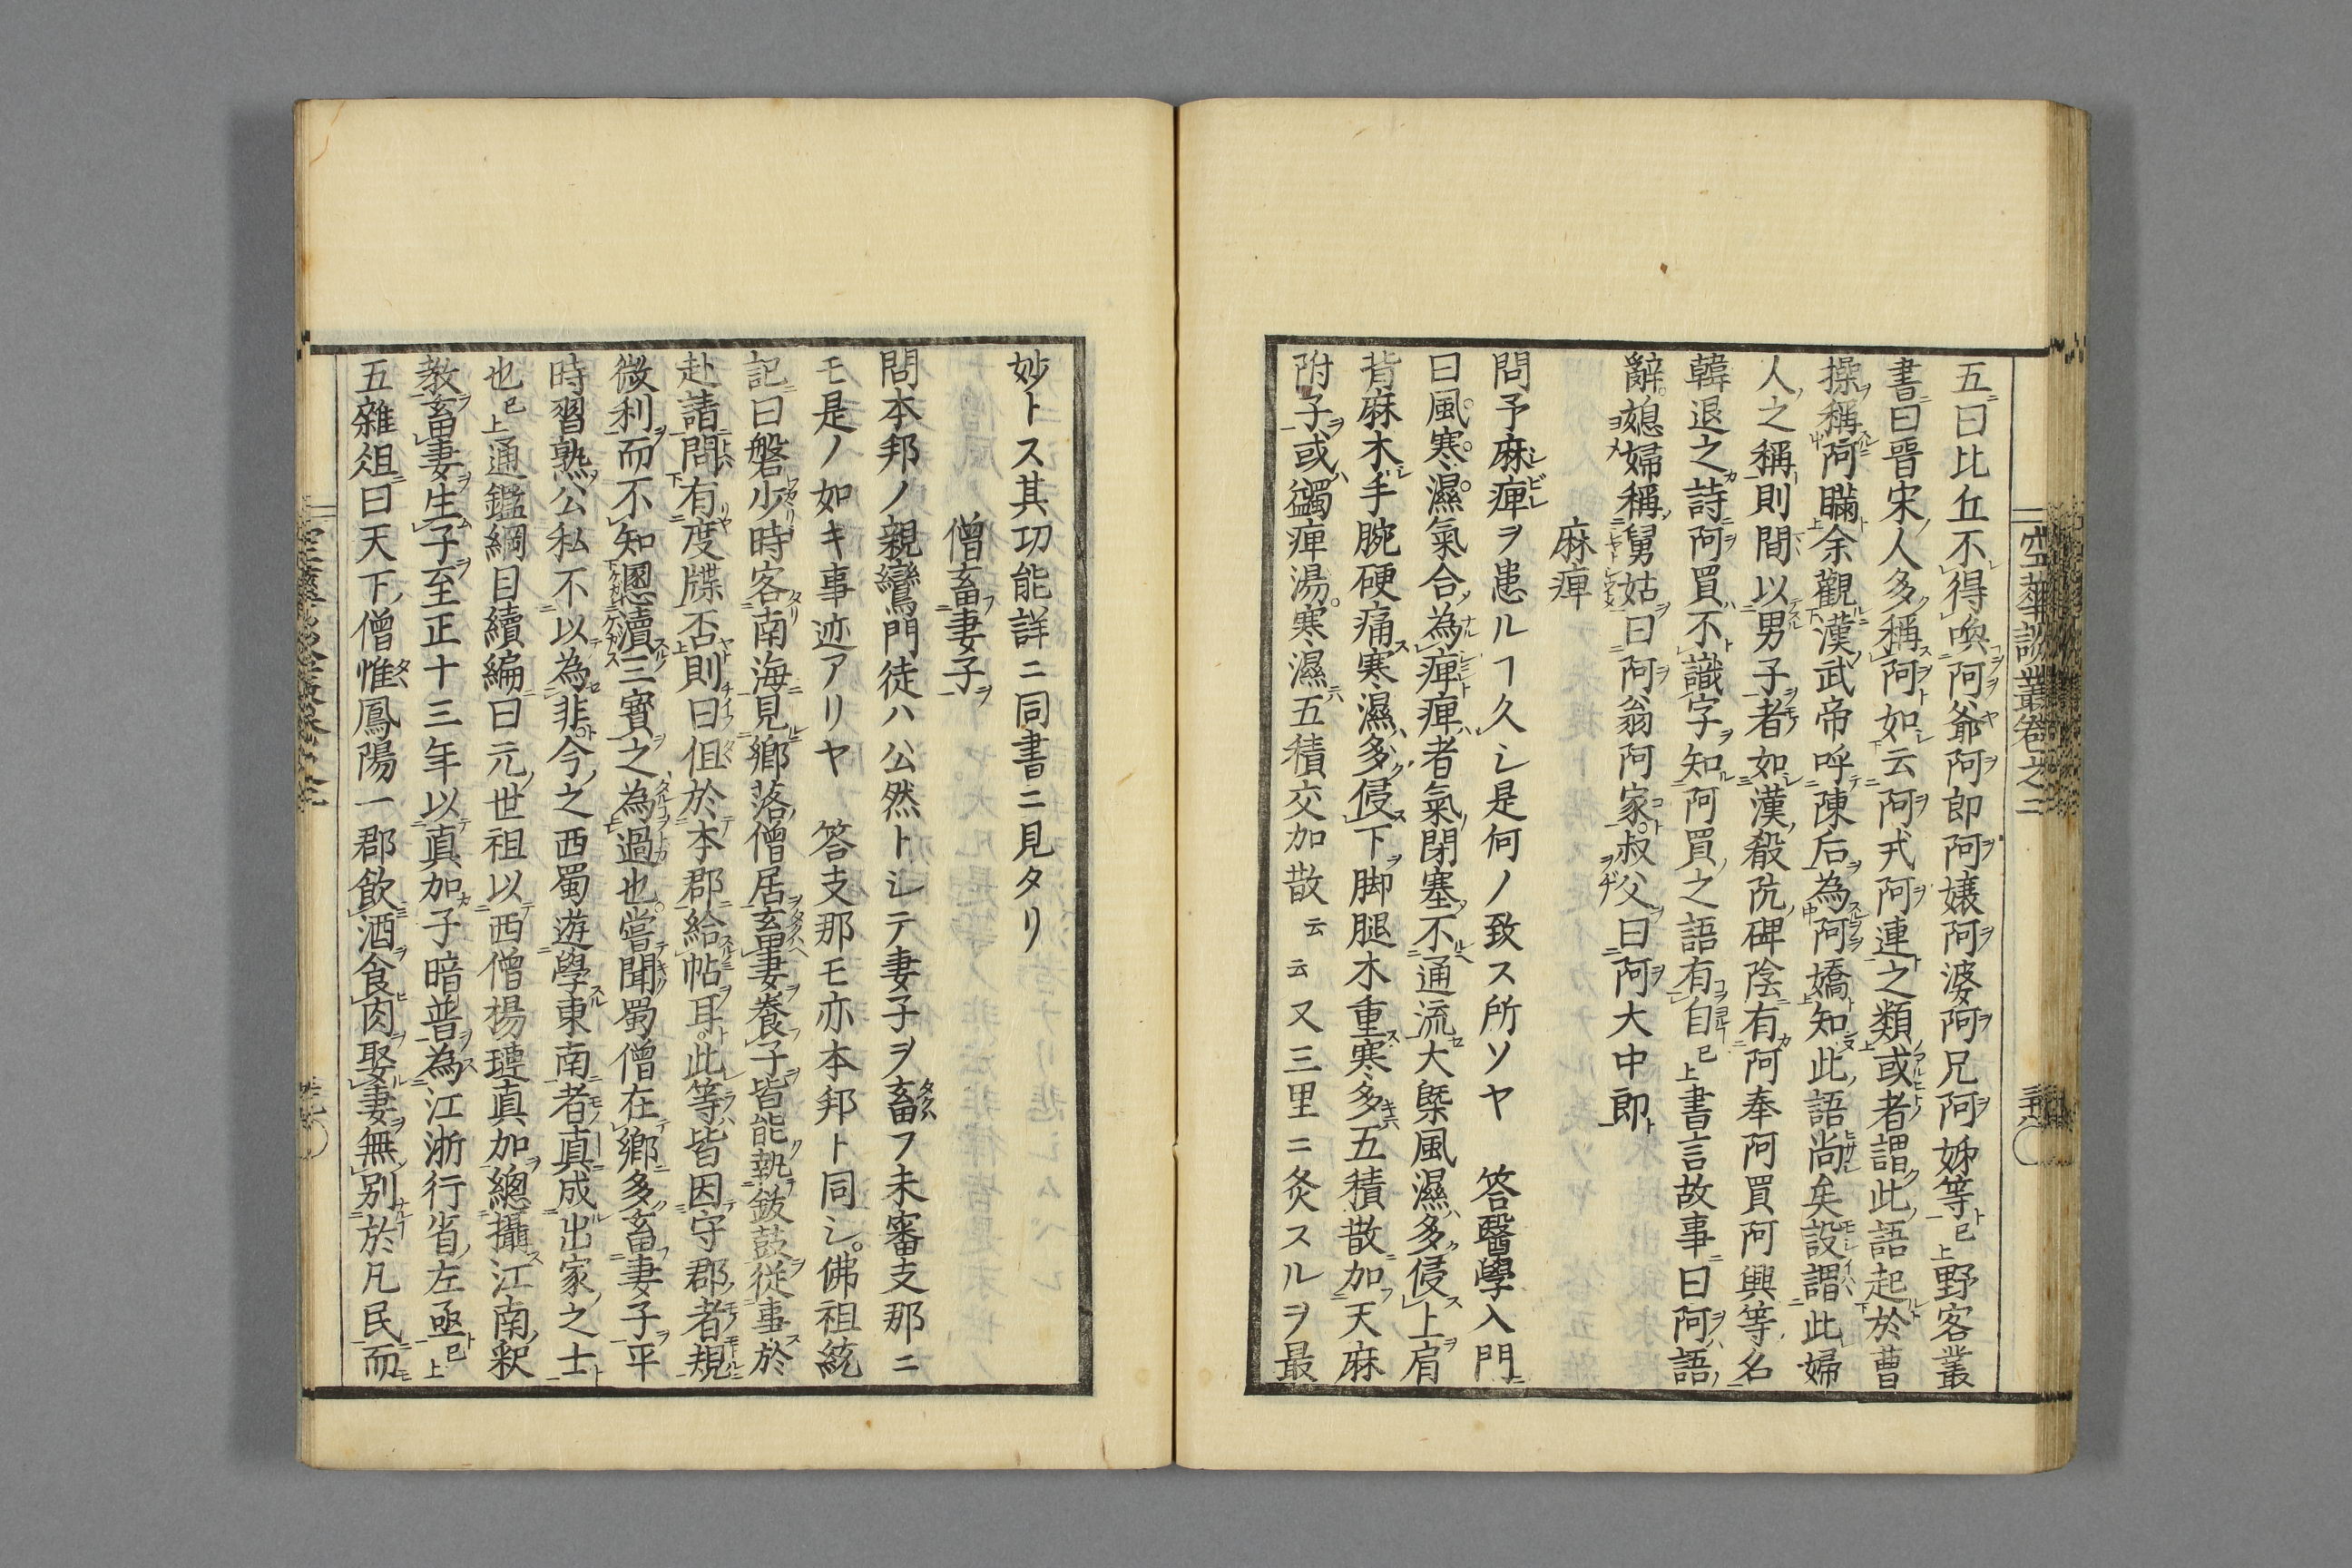 空華談叢卷之二 三十八
五曰比丘不得喚阿爺阿郎阿孃阿婆阿兄阿姊等已上野客叢
書曰晋宋人多稱阿如云阿戎阿連之類或者謂此語起於曹
操稱阿瞞余觀漢武帝呼陳后為阿嬌知此語尚矣設謂此婦
人之稱則間以男子者如漢殽阬碑陰有阿奉阿買阿興等名
韓退之詩阿買不識字知阿買之語有自已上書言故事曰阿語
辭媳婦稱舅姑曰阿翁阿家叔父曰阿大中郎
麻痺
問予麻痺ヲ患ルヿ久シ是何ノ致ス所ソヤ 答醫學入門
曰風寒濕氣合為痺痺者氣閉塞不通流大槩風濕多侵上肩
背麻木手腕硬痛寒濕多侵下脚腿木重寒多五積散加天麻
附子或蠲痺湯寒濕五積交加散云云又三里ニ灸スルヲ最
妙トス其功能詳ニ同書ニ見タリ
僧畜妻子
問本邦ノ親鸞門徒ハ公然トシテ妻子ヲ畜フ未審支那ニ
モ是ノ如キ事迹アリヤ 答支那モ亦本邦ト同シ佛祖統
記曰磐少時客南海見鄉落僧居畜妻養子皆能執鈸鼓從事於
赴請問有度牒否則曰但於本郡給帖耳此等皆因守郡者規
微利而不知慁瀆三寶之為過也嘗聞蜀僧在鄉多畜妻子平
時習熟公私不以為非今之西蜀遊學東南者真成出家之士
也已上通鑑綱目續編曰元世祖以西僧楊璉真加總攝江南釈
教畜妻生子至正十三年以真加子暗普為江浙行省左亟已上
五雜俎曰天下僧惟鳳陽一郡飲酒食肉娶妻無別於凡民而